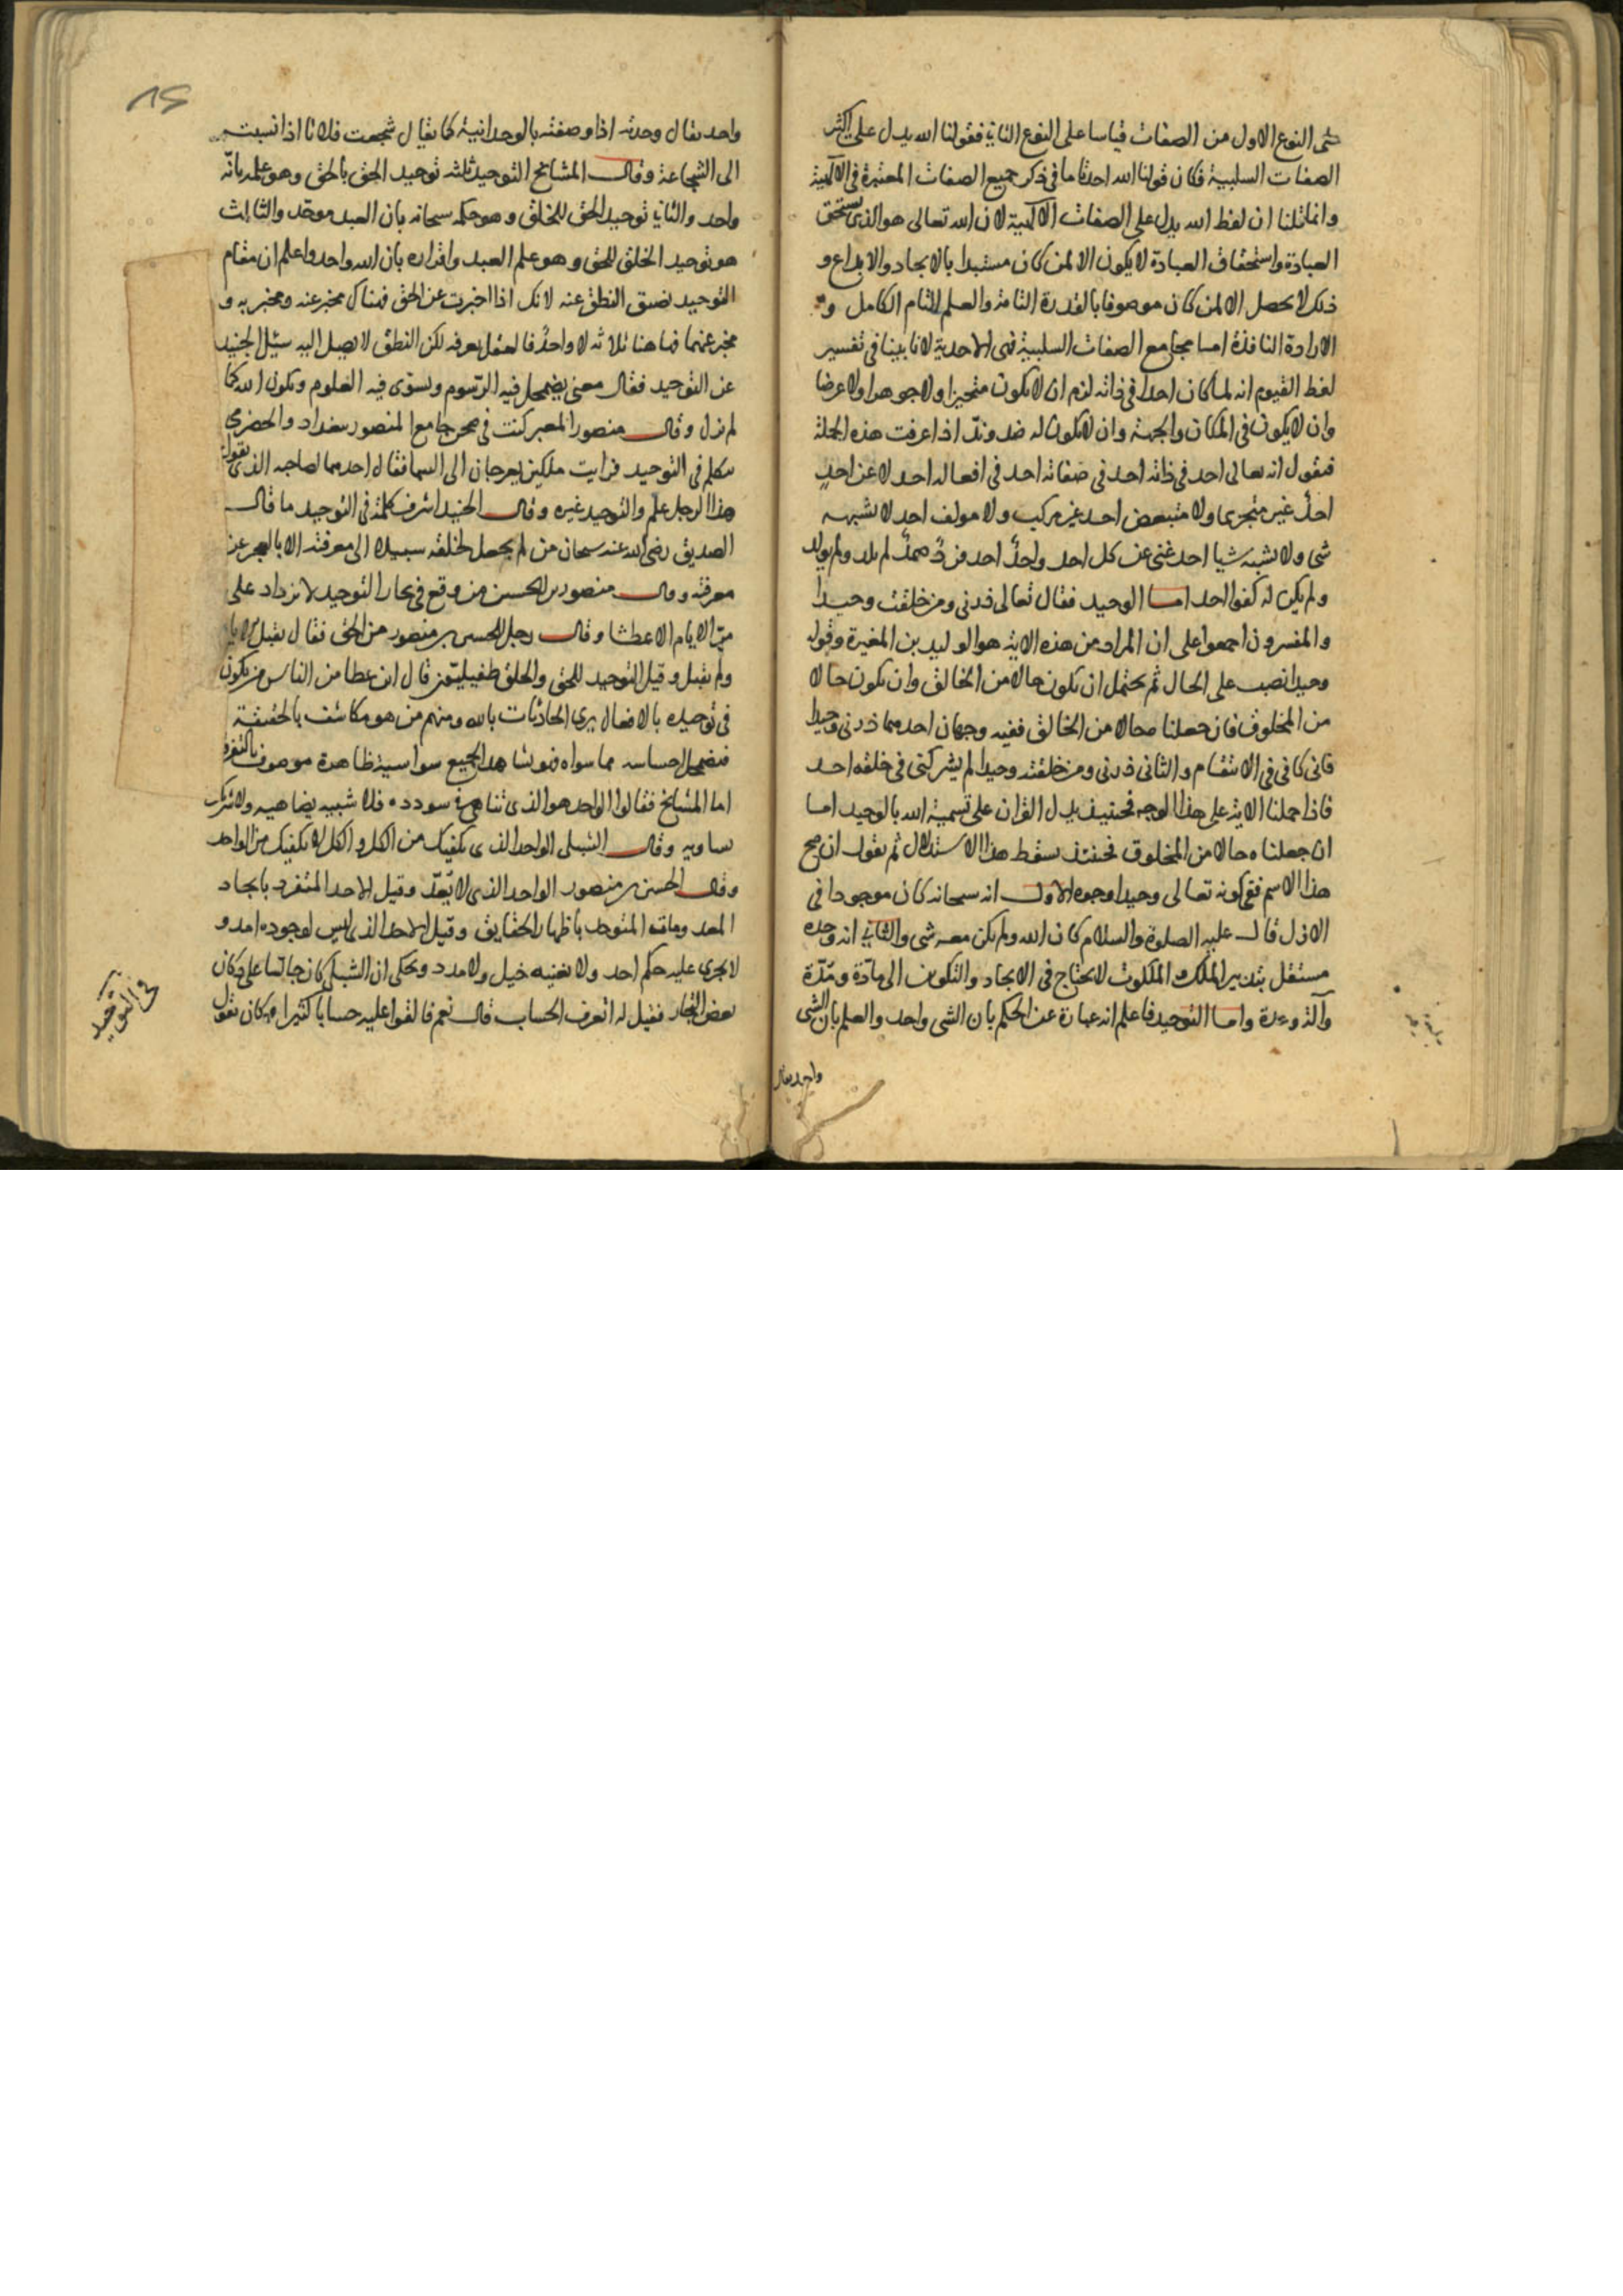 شى النوع الاول من الصفات قياسا على النوع الثانى فقولنا الله يدل على اكثر
الصفات السلبية فكان قولنا الله احد تاما فى ذكر جميع الصفات المعتبرة فى الالهية
وانما قلنا ان لفظ الله يدل على الصفات الالهية لان الله تعالى هو الذى يستحق
العبادة واستحقاق العبادة لا يكون الا لمن كان مستبدا بالايجاد والابداع و
ذلك لا يحصل الا لمن كان موصوفا بالقدرة التامة والعلم التام الكامل و
الارادة النافذة اما مجامع الصفات السلبية فهى الاحدية لانا بينا فى تفسير
لفظ القيوم انه لما كان احدا فى ذاته لزم ان لا يكون متحيزا ولا جوهرا ولا عرضا
وان لا يكون فى المكان والجهة وان لا يكون له ضد وندّ اذا عرفت هذه الجملة
فنقول انه تعالى احد فى ذاته احد فى صفاته احد فى افعاله احد لا عن احدٍ
احدٌ غير متجزى ولا متبعض احد غير مركب ولا مولف احد لا يشبهه
شى ولا يشبه شيا احد غنى عن كل احد واحدٌ احد فردٌ صمدٌ لم يلد ولم يولد
ولم يكن له كفوا احد اما الوحيد فقال تعالى ذرنى ومن خلقت وحيدا
والمفسرون اجمعوا على ان المراد من هذه الاية هو الوليد بن المغيرة وقوله
وحيدا نصب على الحال ثم يحتمل ان يكون حالا من الخالق وان يكون حالا
من المخلوق فان جعلناه حالا من الخالق ففيه وجهان احدهما ذرنى وحيدا
فانى كافى فى الانتقام والثانى ذرنى ومن خلقته وحيدا لم يشركنى فى خلقه احد
فاذا حملنا الاية على هذا الوجه فحينئذ يدل القران على تسمية الله بالوحيد اما
ان جعلناه حالا من المخلوق فحينئذ سقط هذا الاستدلال ثم نقول ان صح
هذا الاسم ففى كونه تعالى وحيدا وجوه الاول انه سبحانه كان موجودا فى
الازل قال عليه الصلوة والسلام كان الله ولم يكن معه شى والثانى انه وحده
مستقل بتدبير الملك والملكوت لا يحتاج فى الايجاد والتكوين الى مادّة ومدّة
وآلة وعدة واما التوحيد فاعلم انه عبارة عن الحكم بان الشى واحد والعلم بان الشى
واحد يقال
واحد يقال وحدته اذا وصفته بالوحدانية كما يقال شجعت فلانا اذا نسبته
الى الشجاعة وقال المشايخ التوحيد ثلثة توحيد الحق بالحق وهو علمه بانّه
واحد والثانى توحيد الحق للخلق وهو حكمه سبحانه بان العبد موحد والثالث
هو توحيد الخلق للحق وهو علم العبد واقراره بان الله واحد واعلم ان مقام
التوحيد يضيق النطق عنه لانك اذا اخبرت عن الحق فهناك مخبر عنه ومخبر به و
مخبر عنهما فها هنا ثلاثة لا واحدٌ فالعقل يعرفه لكن النطق لا يصل اليه سئل الجنيد
عن التوحيد فقال معنى يضمحل فيه الرسوم ويستوى فيه العلوم ويكون الله كما
لم يزل وقال منصور المعبر كنت فى صحن جامع المنصور ببغداد والحضرى
يتكلم فى التوحيد فرايت ملكين يعرجان الى السما فقال احدهما لصاحبه الذى يقوله
هذا الرجل علم والتوحيد غيره وقال الجنيد اشرف كلمة فى التوحيد ما قال
الصديق رضى الله عنه سبحان من لم يجعل لخلقه سبيلا الى معرفته الا بالعجز عن
معرفته وقال منصور بن الحسين من وقع فى بحار التوحيد لا يزداد على
مرّ الايام الا عطشا وقال رجل للحسين بن منصور من الحق فقال
ولم يقبل وقيل التوحيد للحق والخلق طفيلى قال ابن عطا من الناس من يكون
فى توحيده بالافعال يرى الحادثات بالله ومنهم من هو مكاشف بالحقيقة
فيضمحل احساسه مما سواه فهو يشاهد الجميع سرا بسر وظاهره موصوف بالتفرقة
اما المشايخ فقالوا الواحد هو الذى تناهى فى سودده فلا شبيه يضاهيه ولا شريك
يساويه وقال الشبلى الواحد الذى يكفيك من الكل والكل لا يكفيك من الواحد
وقال الحسين بن منصور الواحد الذى لا يُعدّ وقيل الاحد المنفرد بايجاد
المعدومات المتوحد باظهار الخفايق وقيل الاحد الذى ليس لوجوده امد و
لا يجرى عليه حكم احد ولا يغنيه خيل ولا مدد ويحكى ان الشبلى كان جالسا على دكان
بعض التجار فقيل له اتعرف الحساب قال نعم فالقوا عليه حسابا كثيرا وكان يقول
فى التوحيد